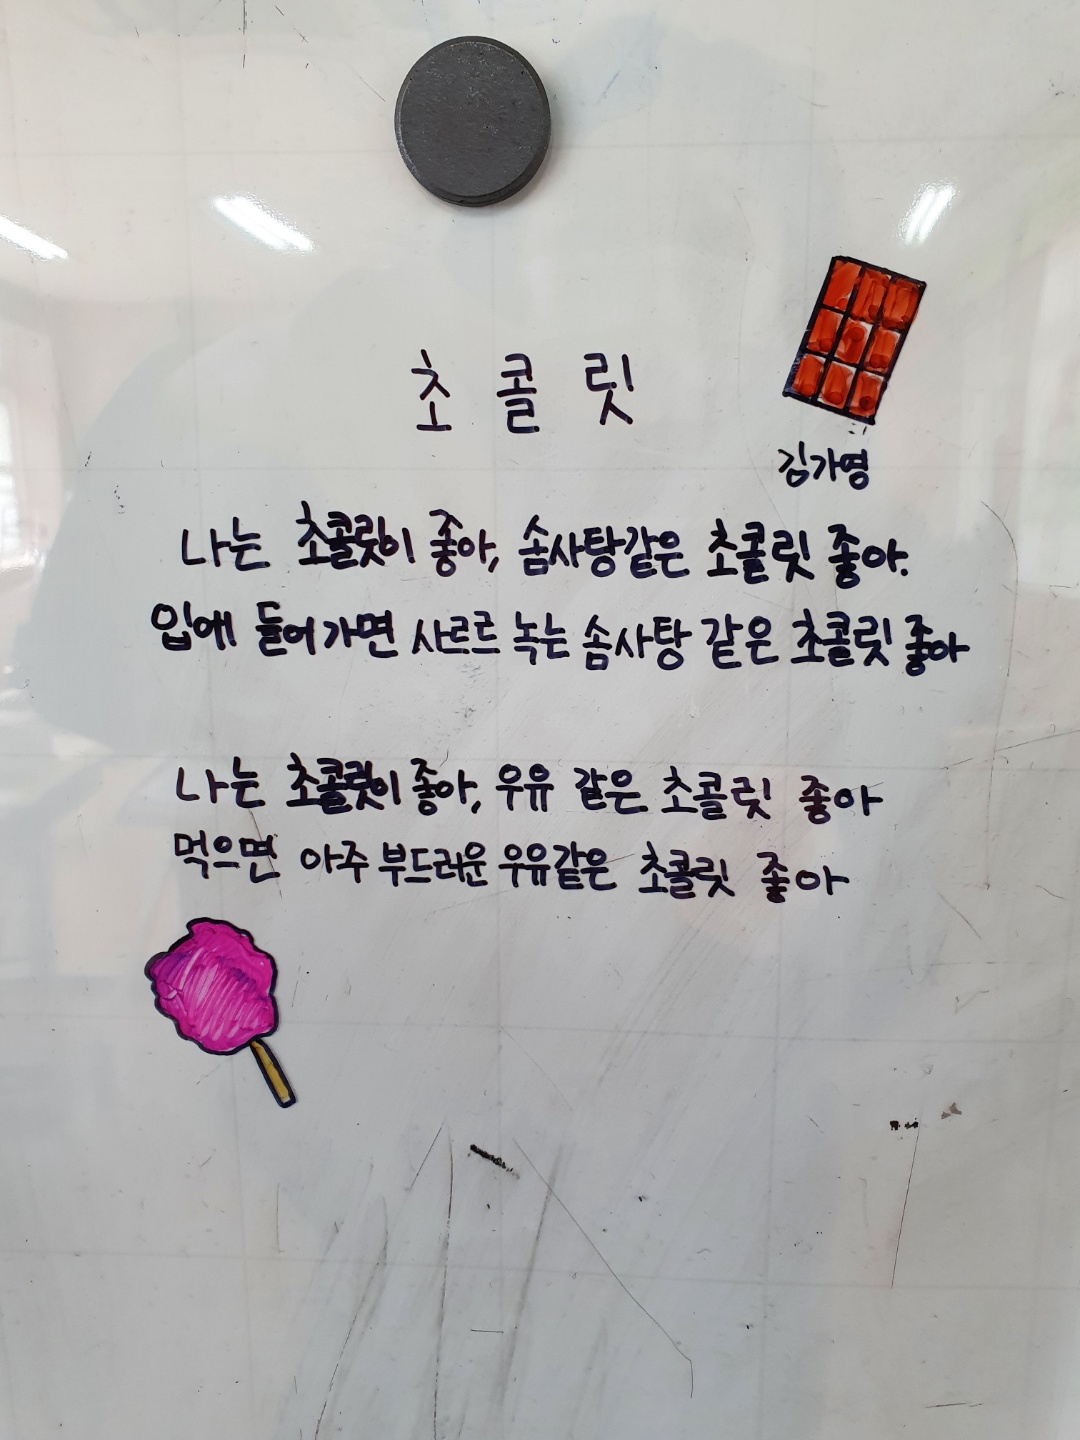 초콜릿
김가영
나는 초콜릿이 좋아, 솜사탕같은 초콜릿 좋아.
입에 들어가면 사르르 녹는 솜사탕 같은 초콜릿 좋아
나는 초콜릿이 좋아, 우유 같은 초콜릿 좋아
먹으면 아주 부드러운 우유같은 초콜릿 좋아